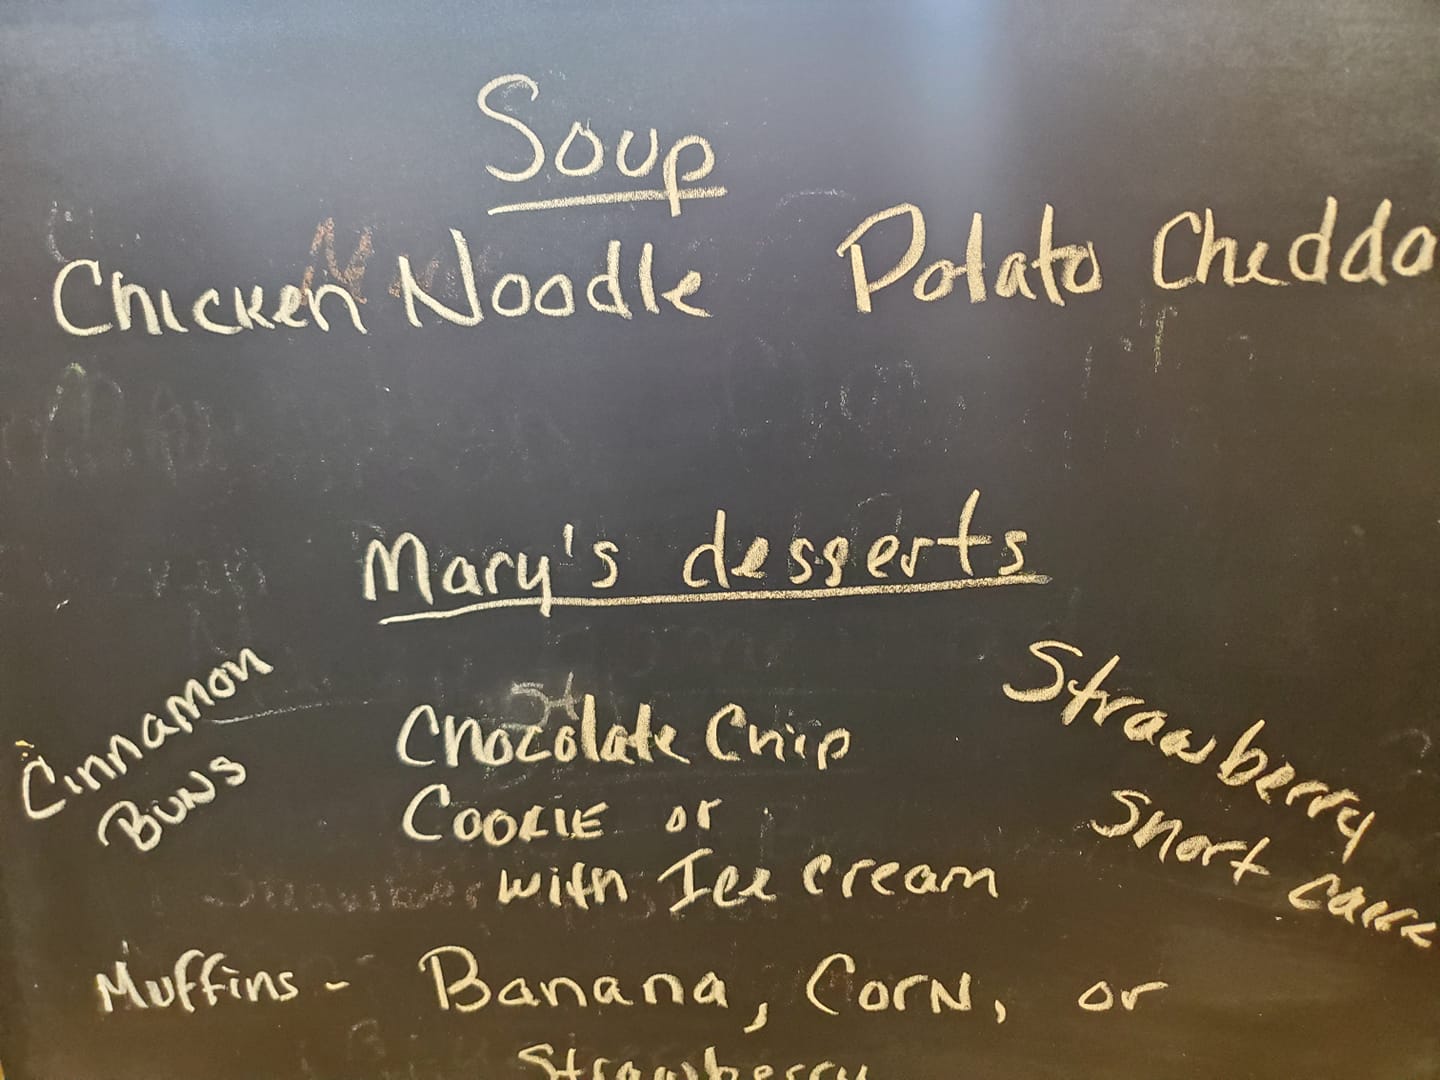 Soup
Chicken Noodle Potato Chedda
Mary's desserts
Cinnamon
Buns
Chocolate Chip
Cookie or
with Ice cream
Strawberry
Short cake
Muffins - Banana, Corn, or
Strawberry